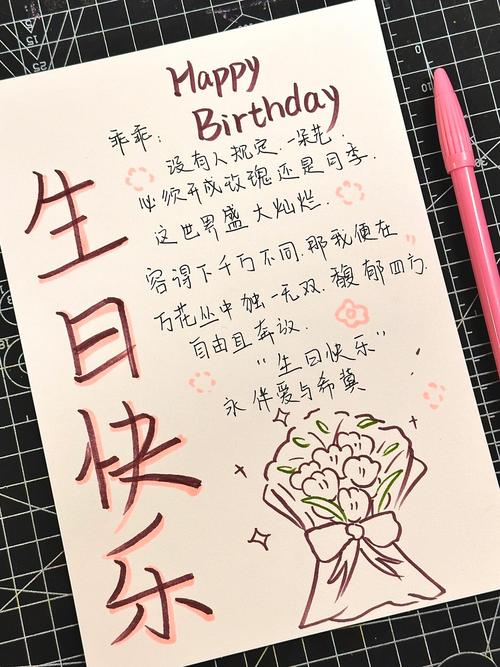 Happy
Birthday
生日快乐
乖乖：
没有人规定.一朵花.
必须开成玫瑰还是月季.
这世界盛大灿烂.
容得下千万不同.那我便在
万花丛中独一无双.馥郁四方.
自由且奔放.
“生日快乐”
永伴爱与希冀